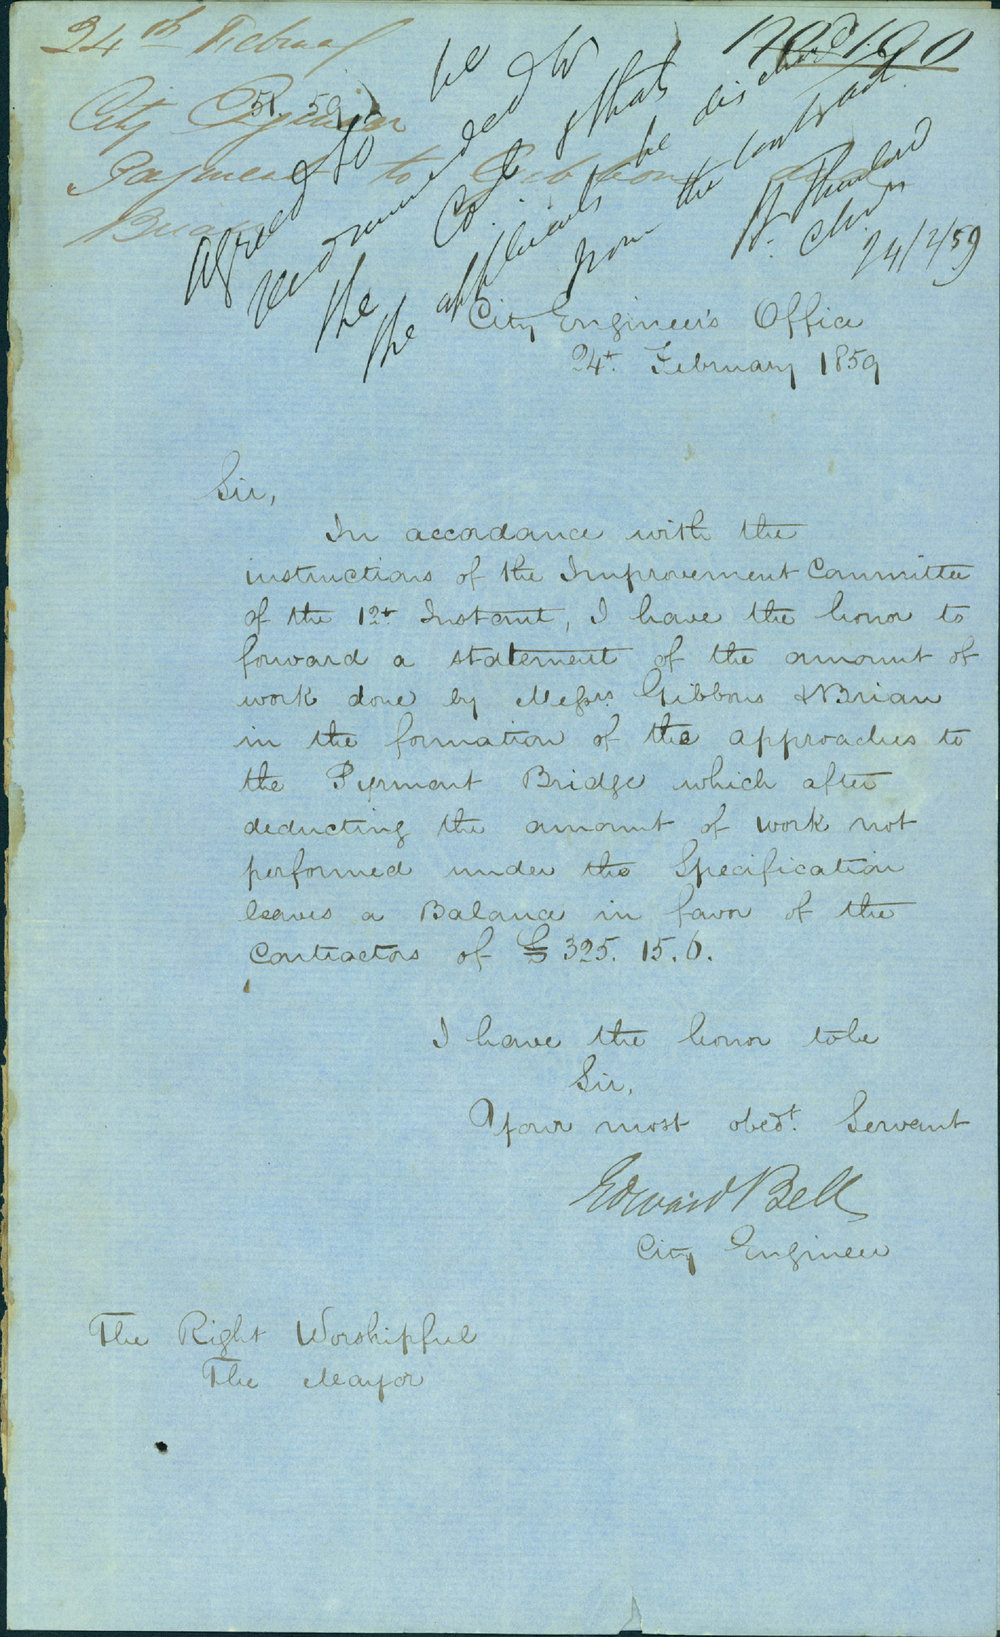 24th Februa
City Engineer
51. 59
Payment to Gibbons and
Brian
No 190
Agreed to be
recommended to
the Co. & that
the applicants be discharged
from the contract
Chn
24/2/59
City Engineer's Office
24th February 1859
Sir,
In accordance with the
instructions of the Improvement Committee
of the 12th Instant, I have the honor to
forward a statement of the amount of
work done by Messrs Gibbons & Brian
in the formation of the approaches to
the Pyrmont Bridge which after
deducting the amount of work not
performed under the Specification
leaves a Balance in favor of the
Contractors of £325. 15. 0.
I have the honor to be
Sir,
Your most obedt. Servant
Edward Bell
City Engineer
The Right Worshipful
The Mayor